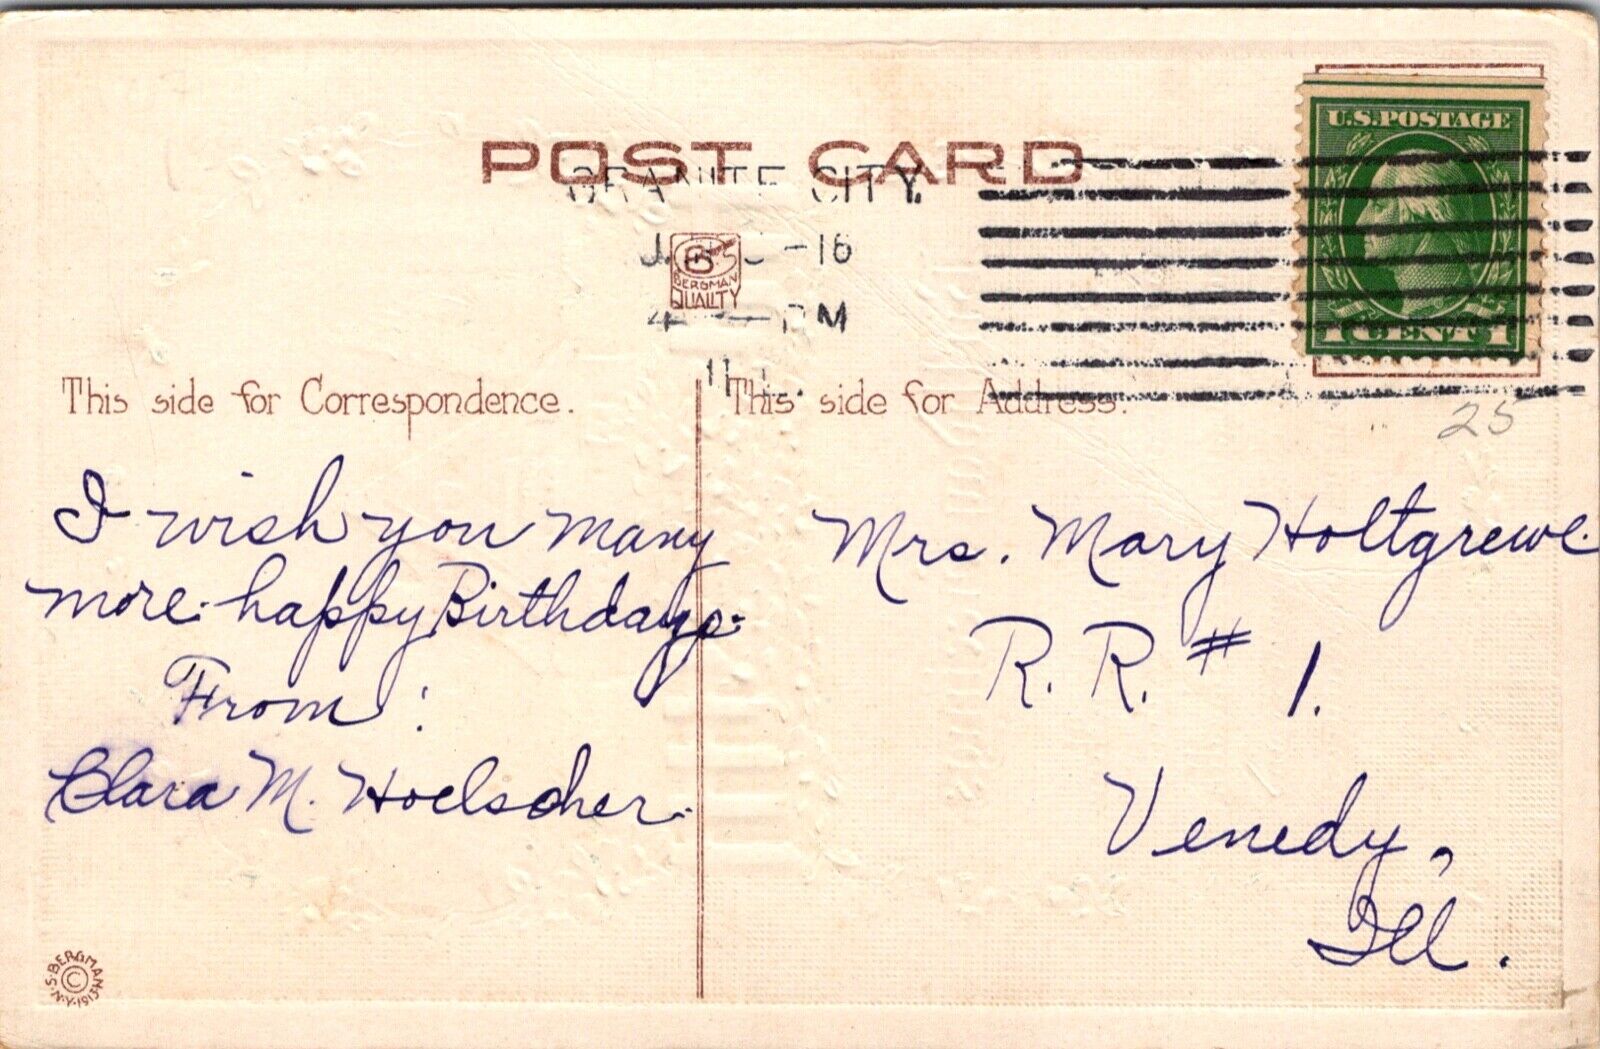 U.S.POSTAGE
1 CENT 1
POST CARD
GRANITE CITY.
-16
4 PM
BERGMAN
QUALITY
This side for Correspondence.
This side for Address.
25
I wish you many
more happy Birthdays.
From:
Clara M. Hoelscher.
Mrs. Mary Holtgrewe.
R. R. # 1.
Venedy,
Ill.
S. BERGMAN N.Y. 1913
©